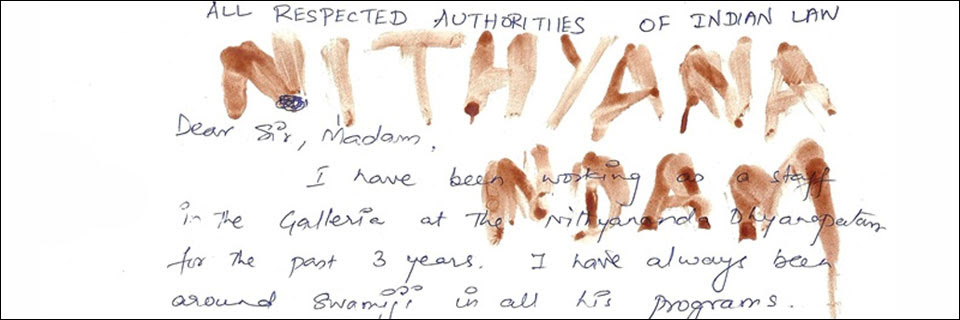 ALL RESPECTED AUTHORITIES OF INDIAN LAW
NITHYANA
Dear Sir, Madam,
NDAM
I have been working as a staff
in the Galleria at the Nithyananda Dhyanapeetam
for the past 3 years. I have always been
around Swamiji in all his programs.